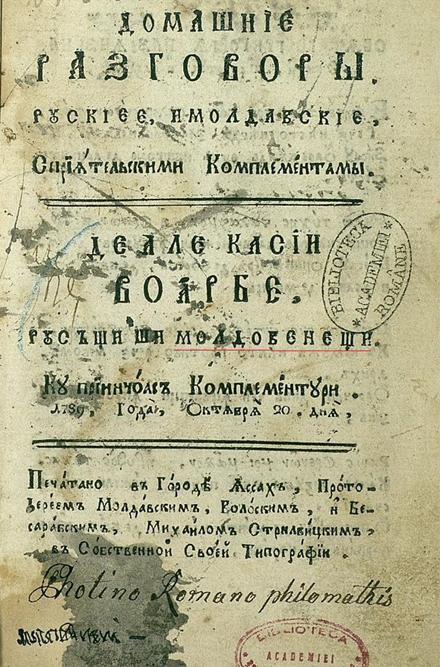 ДОМАШНІЕ
РАЗГОВОРЫ.
РꙊСКІЕЄ, ИМОЛДАВСКІЕ,
Спріѧ́тельскими Комплеме́нтамы.
ДЕАЛЕ КАСІИ
ВОАРБЕ,
РꙋСѢЩИ ШИ МОЛДОВЕНЕЩИ.
Кꙋ пріинчоасъ Комплементꙋри.
1789, Года̀, Октѧврѧ̀ 20. днѧ̀,
Печа́тано въ Го́родѣ Ꙗссахъ, Прото-
їереемъ Молда́вскимъ, Волоскимъ, и Бе-
сарабскимъ, Михаиломъ Стрилбицкимъ,
въ Собственной Своей Типографіи.
Photino Romano philomathis
BIBLIOTECA
ACADEMIEI
ROMÂNE
BIBLIOTECA
ACADEMIEI